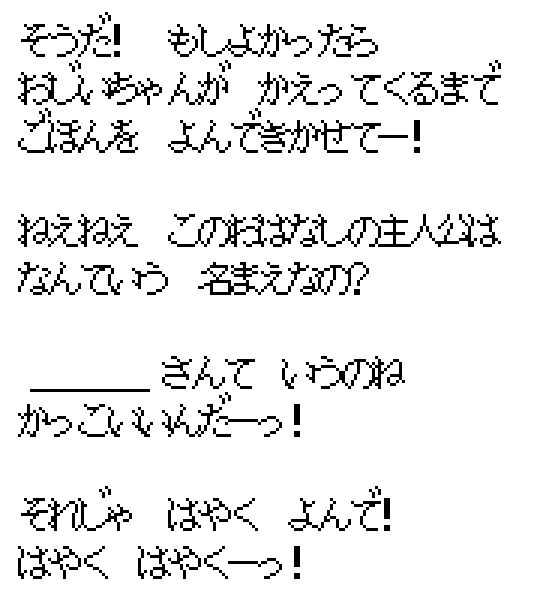 そうだ!　もしよかったら
おじいちゃんが　かえってくるまで
ごほんを　よんできかせてー!
ねえねえ　このおはなしの主人公は
なんていう　名まえなの?
______さんて　いうのね
かっこいいんだーっ!
それじゃ　はやく　よんで!
はやく　はやくーっ!